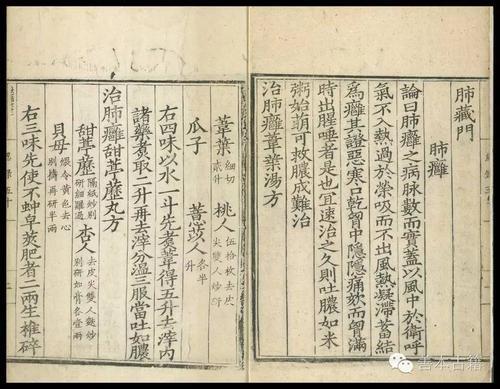 肺藏門
肺癰
論曰肺癰之病脉數而實蓋以風中於衛呼
氣不入熱過於榮吸而不出風熱凝滯蓄結
爲癰其證惡寒口乾胷中隱隱痛欬而胷滿
時出腥唾者是也宜速治之久則吐膿如米
粥始萌可救膿成難治
治肺癰葦葉湯方
葦葉 細切貳升 桃人 伍拾枚去皮尖雙人炒研
瓜子 薏苡人 各半升
右四味以水一斗先煮葦得五升去滓內
諸藥煮取二升再去滓分溫三服當吐如膿
治肺癰甜葶藶丸方
甜葶藶 隔紙炒別研細羅過 杏人 去皮尖雙人麩炒別研如膏各壹兩
貝母 煨令黃色去心別擣半兩
右三味先使不蚛皁莢肥者二兩生椎碎
善本古籍